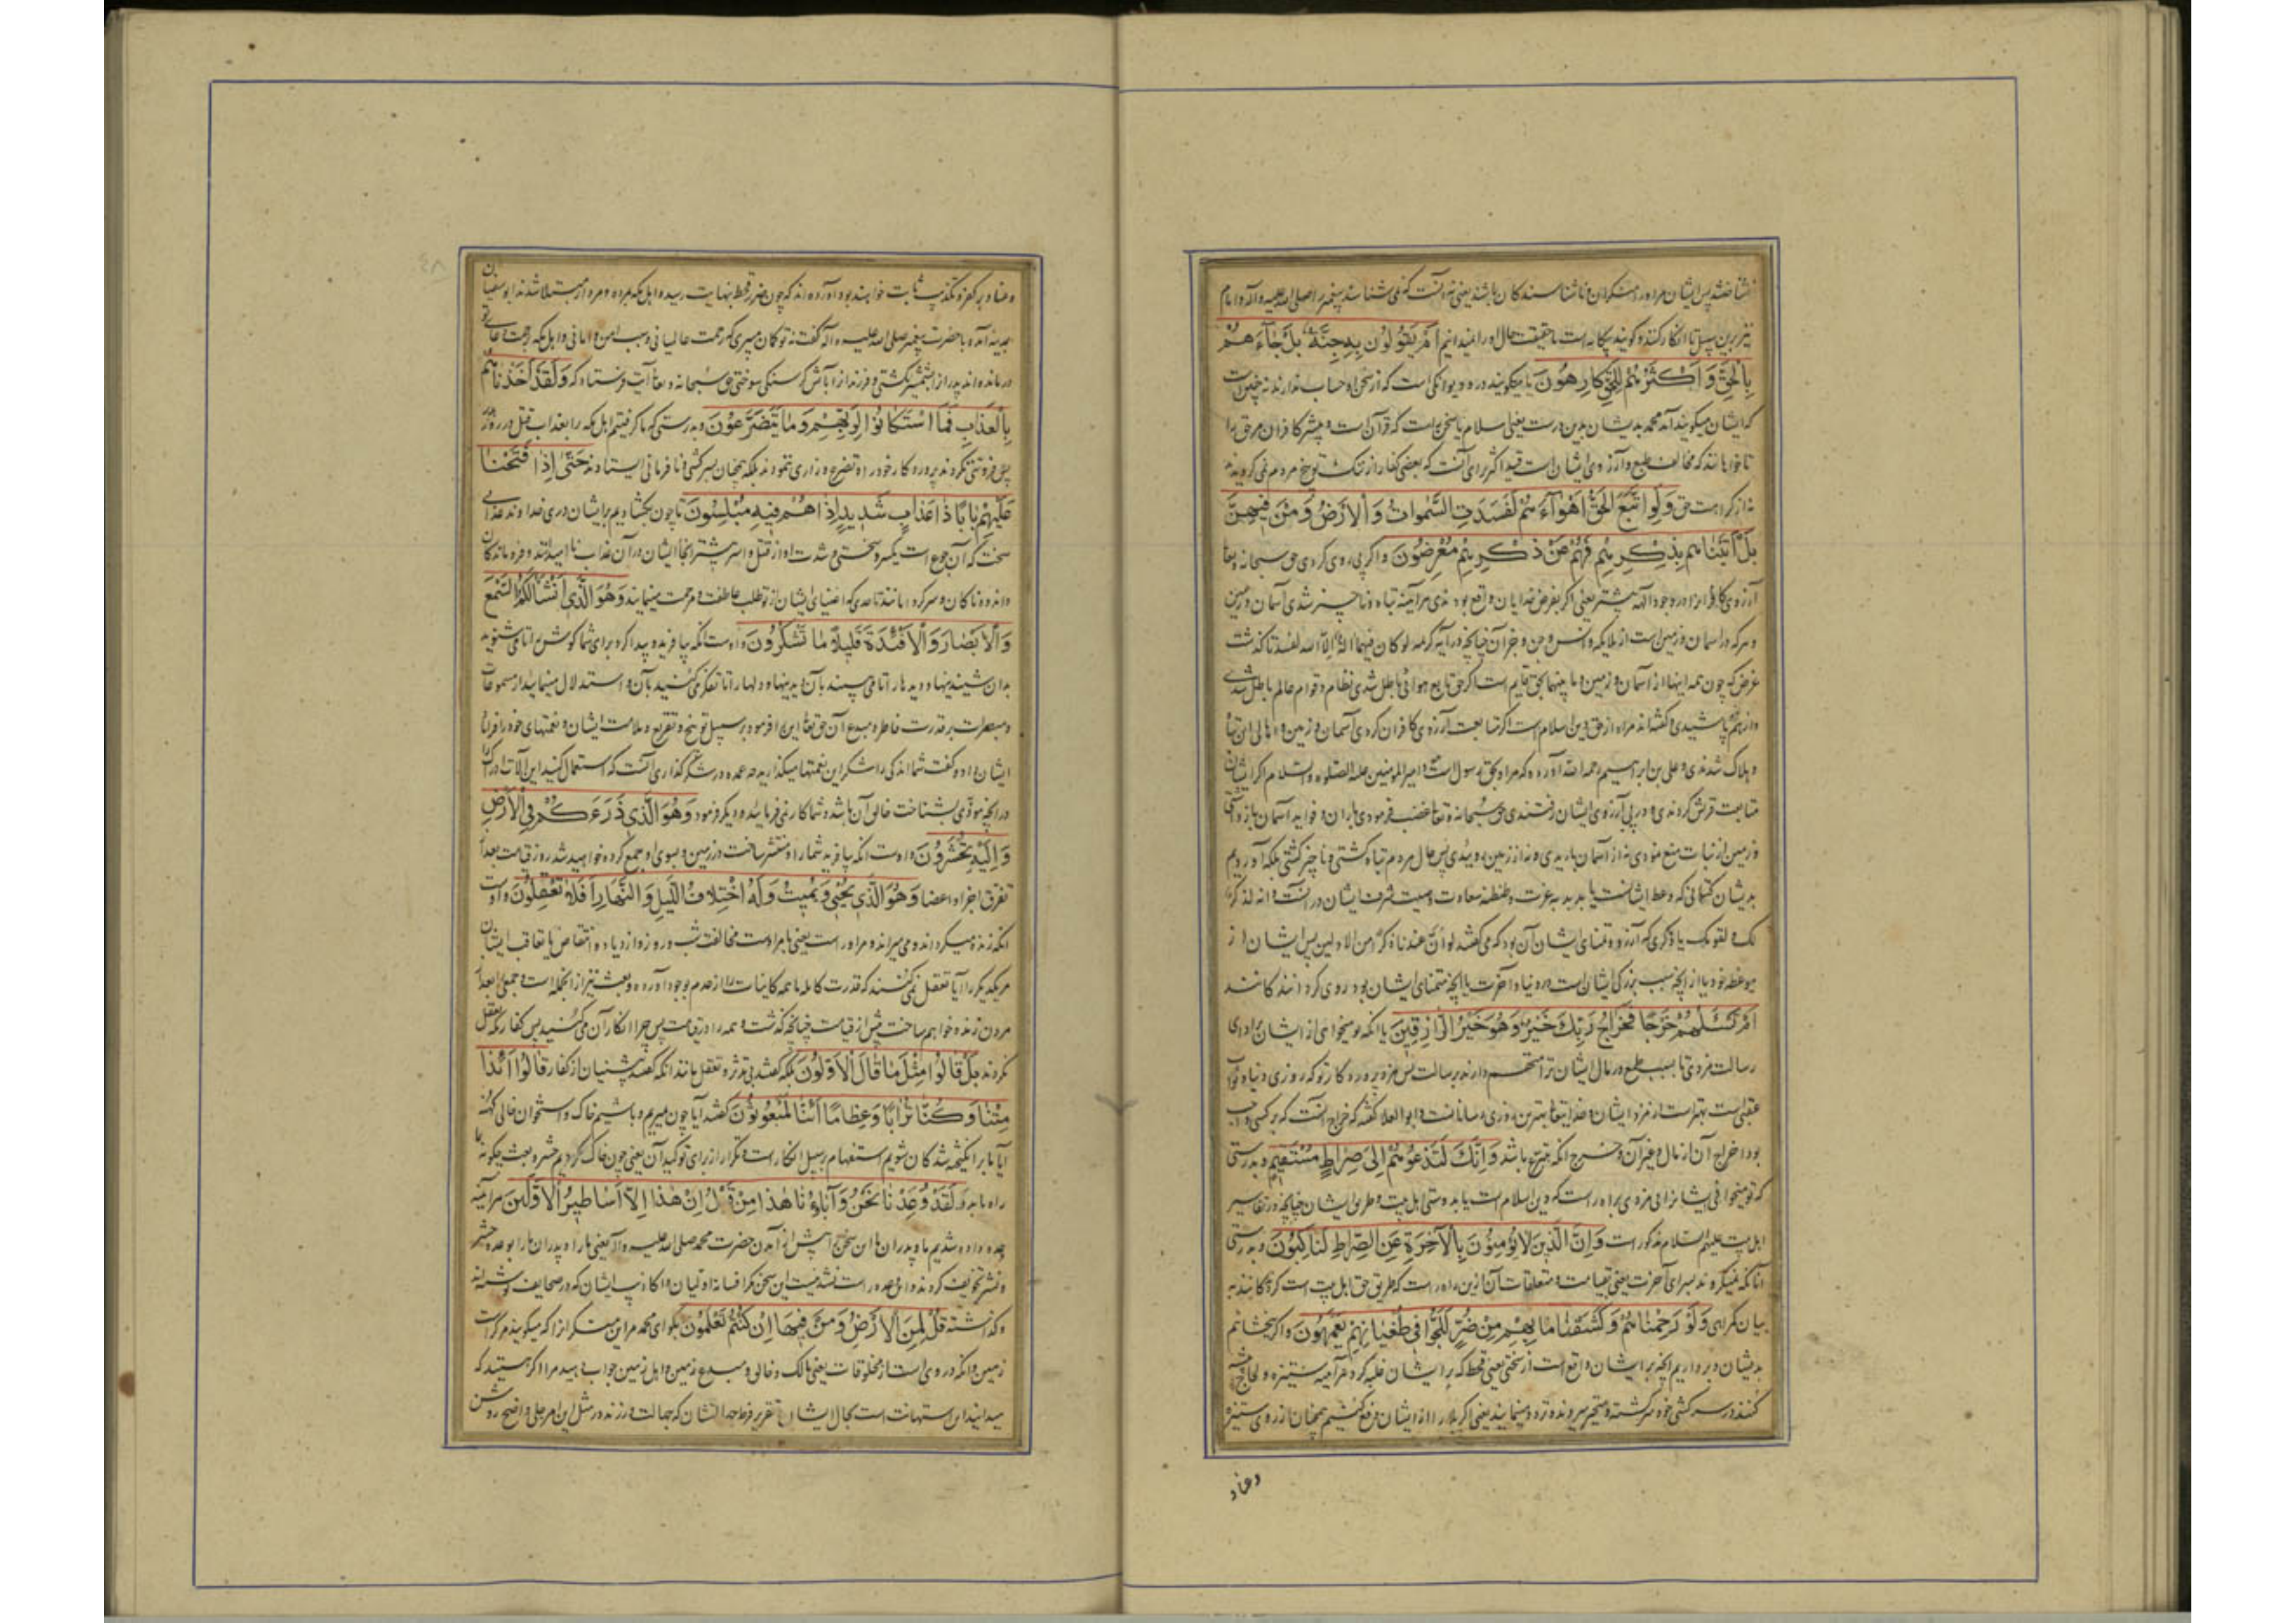 نشناختند پس ایشان مر او را منکران و ناشناسندکان باشند یعنی نه آنست که نمی شناسند پیغمبر را صلی الله علیه و آله و امام
نیز برین سبیل تا انکار کنند و کویند بیکانه است ما حقیقت حال او را نمیدانیم اَمْ یَقُولُونَ بِهِ جِنَّةٌ بَلْ جَآءَهُمْ
بِالْحَقِّ وَ اَکْثَرُهُمْ لِلْحَقِّ کَارِهُونَ یا میکویند در و دیوانکی است که از سخن او حساب ندارند نه چنین است
که ایشان میکویند آمد محمد بدیشان بدین درست یعنی اسلام یا سخن راست که قرآن است و بیشتر کافران مر حق را
ناخواهانند که مخالف طبع و آرزوی ایشان است قید اکثر برای آنست که بعضی کفار از ننک توبیخ مردم نمی کرویدند
نه از کراهت حق وَلَوِ اتَّبَعَ الْحَقُّ اَهْوَآءَهُمْ لَفَسَدَتِ السَّمٰواتُ وَالْاَرْضُ وَمَنْ فیهِنَّ
بَلْ اَتَیْنَاهُمْ بِذِکْرِهِمْ فَهُمْ عَنْ ذِکْرِهِمْ مُعْرِضُونَ و اکر پی روی کردی حق سبحانه و تعا
آرزوی کافرانرا در وجود آلهه بیشتر یعنی اکر بفرض خدایان واقع بودندی هر آینه تباه و ناچیز شدی آسمان و زمین
و هر که در آسمان و زمین است از ملایکه و انس و جن و جز آن چنانچه در آیه کریمه لو کان فیهما آلهة الا الله لفسدتا کذشت
غرض که چون همه اینها از آسمان و زمین و ما بینهما بحق قایم است اکر حق تابع هوائی باطل شدی نظام و قوام عالم باطل شدی
و از هم پاشیدی و کفته اند مراد از حق دین اسلام است اکر متابعت آرزوی کافران کردی آسمان و زمین و اهالی این تباه
و هلاک شدندی و علی بن ابراهیم رحمه الله آورده که مراد بحق رسول است و امیر المومنین علیه الصلوة و السلام اکر ایشان
متابعت قریش کردندی و در پی آرزوی ایشان رفتندی حق سبحانه و تعا غضب فرمودی باران و فواید آسمان باز داشتی
و زمین از نبات منع نمودی نه از آسمان باریدی و نه از زمین روییدی پس حال مردم تباه کشتی و ناچیز کشتی بلکه آوردیم
بدیشان کتابی که وعظ ایشانست یا بدیدبه عزت و طنطنه سعادت وصیت شرف ایشان در آنست و انه لذکر
لک و لقومک یا ذکری که آرزو و تمنای ایشان آن بود که می کفتند لو ان عندنا ذکرا من الاولین پس ایشان از
موعظه خود یا از آنچه سبب بزرکی ایشان است در دنیا و آخرت یا آنچه متمنای ایشان بود روی کردانندکانند
اَمْ تَسْئَلُهُمْ خَرْجًا فَخَرَاجُ رَبِّکَ خَیْرٌ وَهُوَ خَیْرُ الرَّازِقِینَ یا آنکه تو میخواهی از ایشان بر ادای
رسالت مزدی تا بسبب طمع در مال ایشان ترا متهم دارند برسالت پس مزد پروردکار تو که روزی دنیا و ثواب
عقبی است بهتر است از مزد ایشان و خدایتعا بهترین روزی رسانانست و ابوالعلا کفته که خراج آنست که بر کسی واجب
بود اخراج آن از مال و غیر آن و خرج آنکه متبرع باشد وَاِنَّکَ لَتَدْعُوهُمْ اِلیٰ صِرَاطٍ مُسْتَقیمٍ و بدرستی
که تو میخوانی ایشانرا بی مزدی براه راست که دین اسلام است یا بدوستی اهل بیت و طریق ایشان چنانچه در تفاسیر
اهل بیت علیهم السلام مذکور است وَاِنَّ الَّذینَ لَا یُؤْمِنُونَ بِالْآخِرَةِ عَنِ الصِّرَاطِ لَنَاکِبُونَ و بدرستی
آنانکه نمیکروند بسرای آخرت یعنی بقیامت و متعلقات آن ازین راه راست که طریق حق اهل بیت است کردندکانند به
بیابان کمراهی وَلَوْ رَحِمْنَاهُمْ وَکَشَفْنَا مَا بِهِمْ مِنْ ضُرٍّ لَلَجُّوا فِی طُغْیَانِهِمْ یَعْمَهُونَ و اکر ببخشائیم
بدیشان و برداریم آنچه بر ایشان واقع است از سختی یعنی قحط که بر ایشان غلبه کرد هر آینه ستیزه و لجاج
کنند در سرکشی خود سرکشته و متحیر میروند و تردد مینمایند یعنی اکر بلا را از ایشان دفع کنیم همچنان از روی ستیزه
و عناد
و عناد بر کفر و تکذیب ثابت خواهند بود آورده اند که چون ضرر قحط بنهایت رسید و اهل مکه بمرده و مردار مبتلا شدند ابو سفیان
بمدینه آمد و با حضرت پیغمبر صلی الله علیه و آله کفت نه تو کمان میبری که رحمت عالمیانی و سبب امن و امانی و اهل مکه
درمانده اند پدرانرا بشمشیر بکشتی و فرزندانرا بآتش کرسنکی سوختی حق سبحانه و تعا آیت فرستاد که وَلَقَدْ اَخَذْنَاهُمْ
بِالْعَذَابِ فَمَا اسْتَکَانُوا لِرَبِّهِمْ وَمَا یَتَضَرَّعُونَ و بدرستی که ما کرفتیم اهل مکه را بعذاب قتل در روز بدر
پس فروتنی نکردند پروردکار خود را و تضرع و زاری ننمودند بلکه همچنان بسرکشی و نافرمانی ایستادند حَتّیٰ اِذَا فَتَحْنَا
عَلَیْهِمْ بَابًا ذَا عَذَابٍ شَدیدٍ اِذَا هُمْ فیهِ مُبْلِسُونَ تا چون بکشادیم بر ایشان دری خداوند عذابی
سخت که آن جوع است یکسر و سختی و شدت او از قتل و اسر بیشتر آنجا ایشان در آن عذاب ناامیدانند و فرو ماندکان
و اندوهناکان و سرکردانانند تا حدی که اغنیای ایشان از تو طلب عاطفت و مرحمت مینمایند وَهُوَ الَّذی اَنْشَاَ لَکُمُ السَّمْعَ
وَالْاَبْصَارَ وَالْاَفْئِدَةَ قَلِیلًا مَا تَشْکُرُونَ و اوست آنکه بیافرید و پیدا کرد برای شما کوش را تا می شنوید
بدان شنیدنیها و دیدها را تا می بینند بآن دیدنیها و دلها را تا تفکر می کنید بآن و استدلال مینمایند از مسموعات
و مبصرات بر قدرت فاطر و مبدع آن حق تعا این را فرمود بر سبیل توبیخ و تقریع و ملامت ایشان و نعمتهای خود را فرا
ایشان داد و کفت شما اندکی را شکر این نعمتها میکذارید چه عمده در شکرکذاری آنست که استعمال کنید این آلات ادراک را
در آنچه مؤدی بشناخت خالق آن باشد و شما کار نمی فرمائید و دیکر فرمود وَهُوَ الَّذی ذَرَءَکُمْ فِی الْاَرْضِ
وَ اِلَیْهِ تُحْشَرُونَ و اوست آنکه بیافرید شما را و منتشر ساخت در زمین و بسوی او جمع کرده خواهید شد روز قیامت بعد از
تفرق اجزا و اعضا وَهُوَ الَّذی یُحْیی وَ یُمیتُ وَلَهُ اخْتِلَافُ اللَّیْلِ وَ النَّهَارِ اَفَلَا تَعْقِلُونَ و اوست
آنکه زنده میکرداند و می میراند و مر او راست یعنی بامر اوست مخالفت شب و روز و ازدیاد و انتقاص یا تعاقب ایشان
مر یکدیکر را آیا تعقل نمی کنید که قدرت کامله ما همه کاینات را از عدم بوجود آورده و بعث نیز از آنجمله است و جمعی را بعد از
مردن زنده خواهیم ساخت پیش از قیامت چنانچه کذشت و همه را در قیامت پس چرا انکار آن می کنید پس کفار مکه تعقل
نکردند بَلْ قَالُوا مِثْلَ مَا قَالَ الْاَوَّلُونَ بلکه کفتند بی تدبر و تعقل مانند آنکه کفتند پیشینیان از کفار قَالُوا اَئِذَا
مِتْنَا وَ کُنَّا تُرَابًا وَعِظَامًا اَئِنَّا لَمَبْعُوثُونَ کفتند آیا چون میریم و باشیم خاک و استخوان خالی کهنه
آیا ما برانکیخته شدکان شویم استفهام بر سبیل انکار است و تکرار از برای توکید آن یعنی چون خاک کردیم حشر و بعث چکونه بما
راه یابد لَقَدْ وُعِدْنَا نَحْنُ وَ آبَاؤُنَا هٰذَا مِنْ قَبْلُ اِنْ هٰذَا اِلَّا اَسَاطیرُ الْاَوَّلینَ هر آینه
وعده داده شدیم ما و پدران ما این سخن را پیش از آمدن حضرت محمد صلی الله علیه و آله یعنی ما را و پدران ما را بوعده حشر
و نشر تخویف کردند و این وعده راست نشد نیست این سخن مکر افسانه اولیان و اکاذیب ایشان که در صحایف نوشته اند
و کذاشته قُلْ لِمَنِ الْاَرْضُ وَمَنْ فیهَا اِنْ کُنْتُمْ تَعْلَمُونَ بکو ای محمد مر این منکرانرا که میکویند مر کراست
زمین و آنکه در وی است از مخلوقات یعنی مالک و خالق و مبدع زمین و اهل زمین جواب دهید مرا اکر هستید که
میدانید این استهانت است بحال ایشان تقریر فرط جهالت ایشان که جهالت ورزند در مثل این امر جلی واضح روشن